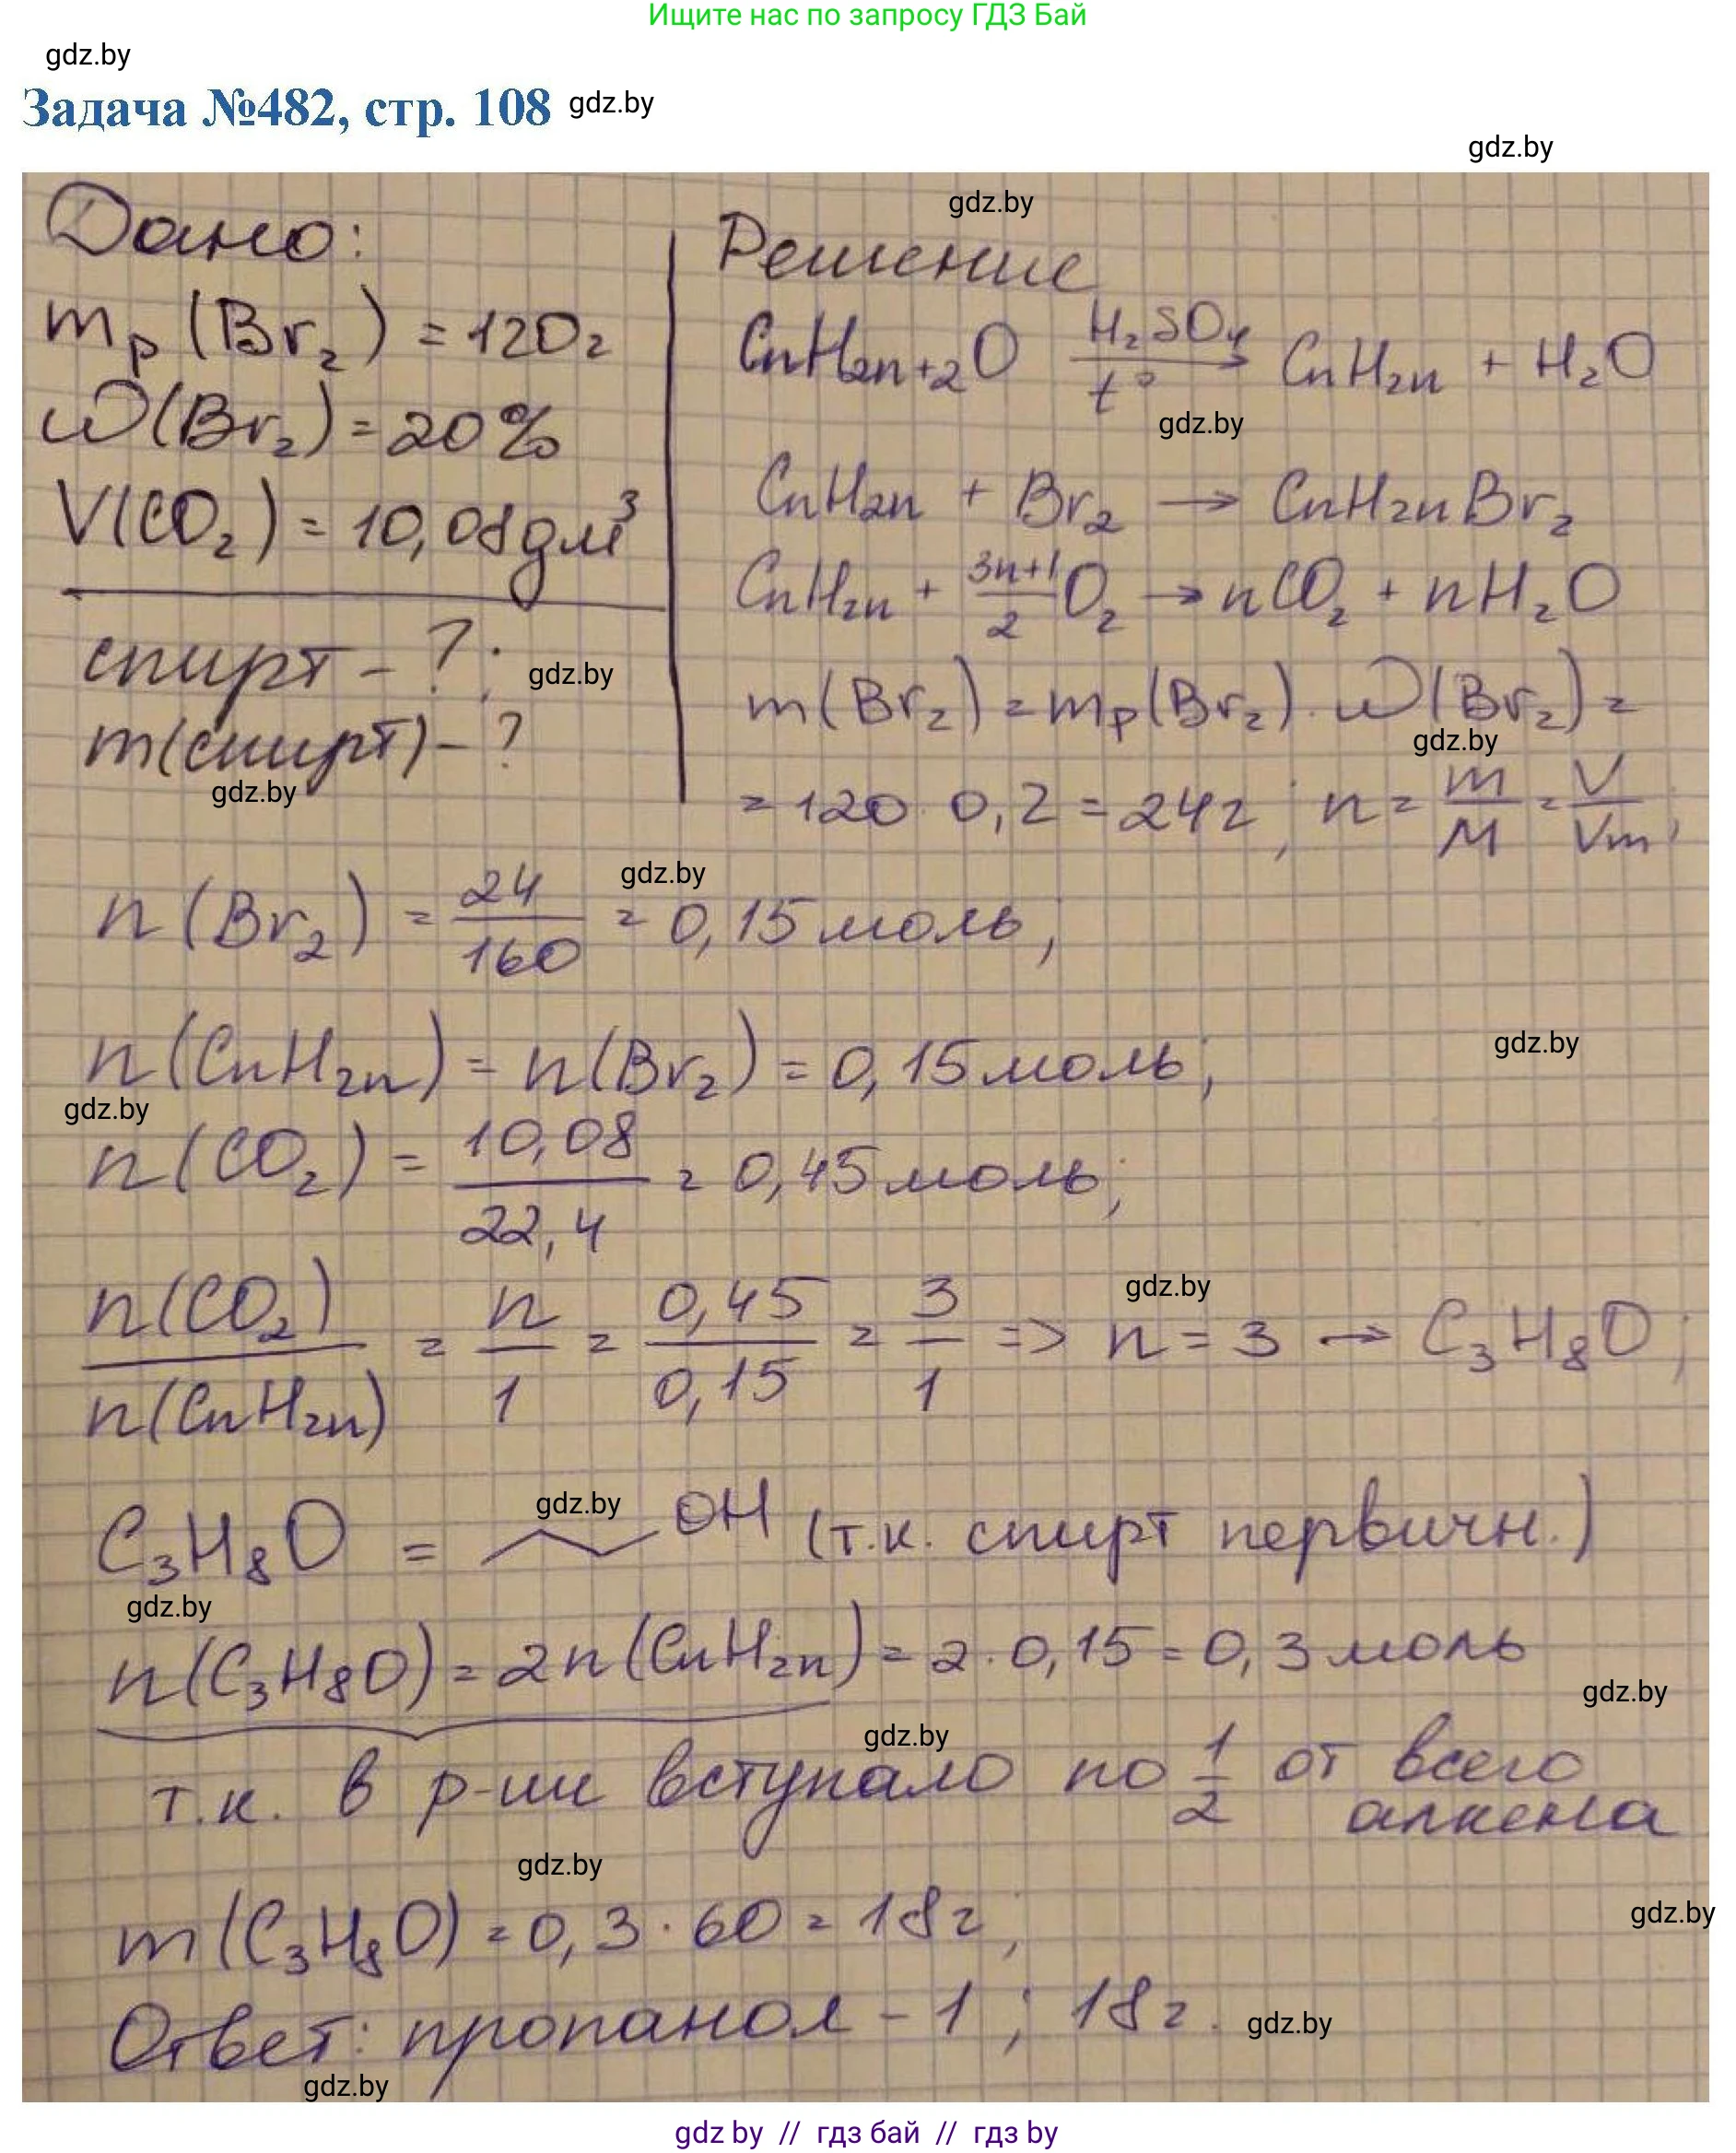 Ищите нас по запросу ГДЗ Бай
gdz.by
Задача №482, стр. 108 gdz.by
gdz.by
gdz.by
Дано:
mр(Br₂) = 120г
ω(Br₂) = 20%
V(CO₂) = 10,08дм³
спирт - ?; gdz.by
m(спирт) - ?
gdz.by
Решение
CnH2n+2O H₂SO₄ t° → CnH2n + H₂O
gdz.by
CnH2n + Br₂ → CnH2nBr₂
CnH2n + 3n+1/2 O₂ → nCO₂ + nH₂O
m(Br₂) = mр(Br₂) · ω(Br₂) =
gdz.by
= 120 · 0,2 = 24г; n = m/M = V/Vm;
gdz.by
n(Br₂) = 24/160 = 0,15 моль;
gdz.by
n(CnH2n) = n(Br₂) = 0,15 моль;
gdz.by
n(CO₂) = 10,08/22,4 = 0,45 моль;
gdz.by
n(CO₂)/n(CnH2n) = n/1 = 0,45/0,15 = 3/1 => n = 3 → C₃H₈O;
gdz.by
C₃H₈O = OH (т.к. спирт первичн.)
gdz.by
n(C₃H₈O) = 2n(CnH2n) = 2 · 0,15 = 0,3 моль
gdz.by
gdz.by
т.к. в р-ии вступало по 1/2 от всего
алкена
gdz.by
m(C₃H₈O) = 0,3 · 60 = 18г;
gdz.by
Ответ: пропанол - 1; 18г. gdz.by
gdz.by
gdz by // гдз бай // гдз by